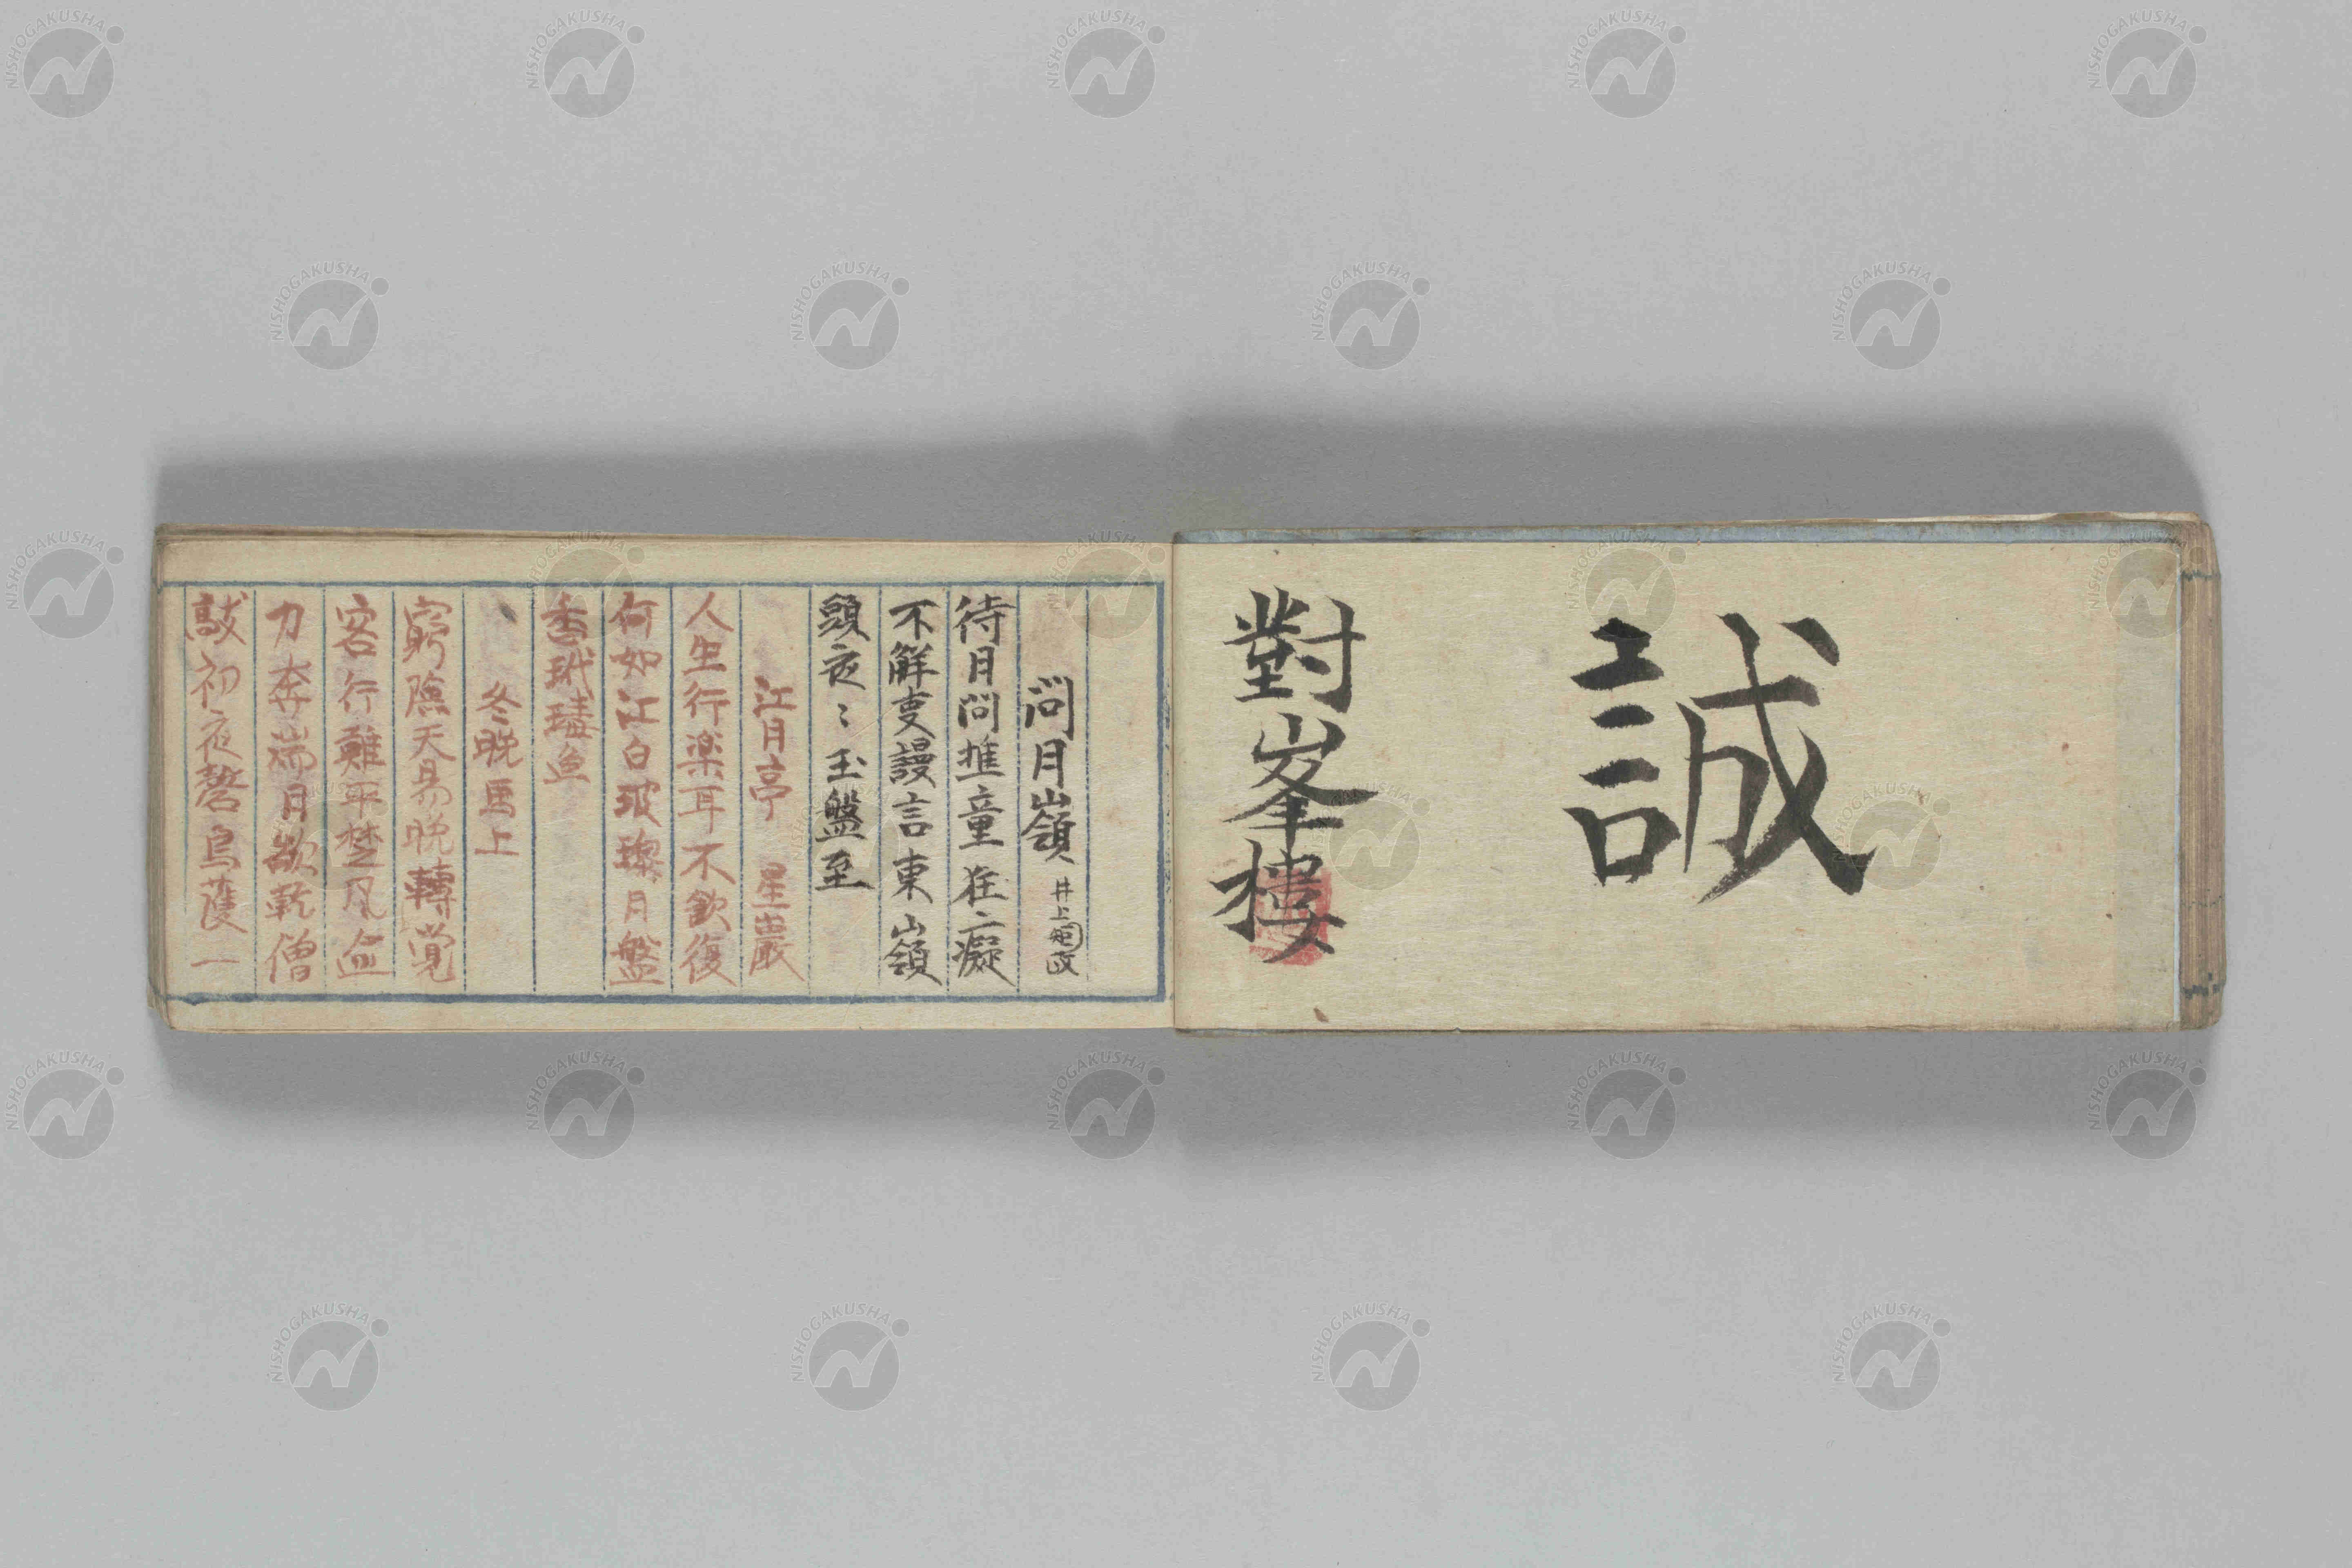 誠
對峯樓
問月嶺 井上
待月問樵童在癡
不解叓謾言東山嶺
頭夜〻玉盤至
江月亭 星巖
人生行楽耳不飲復
何如江白玻瓈月盤
香玳瑇魚
冬晚馬上
窮陰天易晩轉覚
客行難平楚風
力奔端月欲軌僧
敲初夜磬烏蒦一
NISHOGAKUSHA